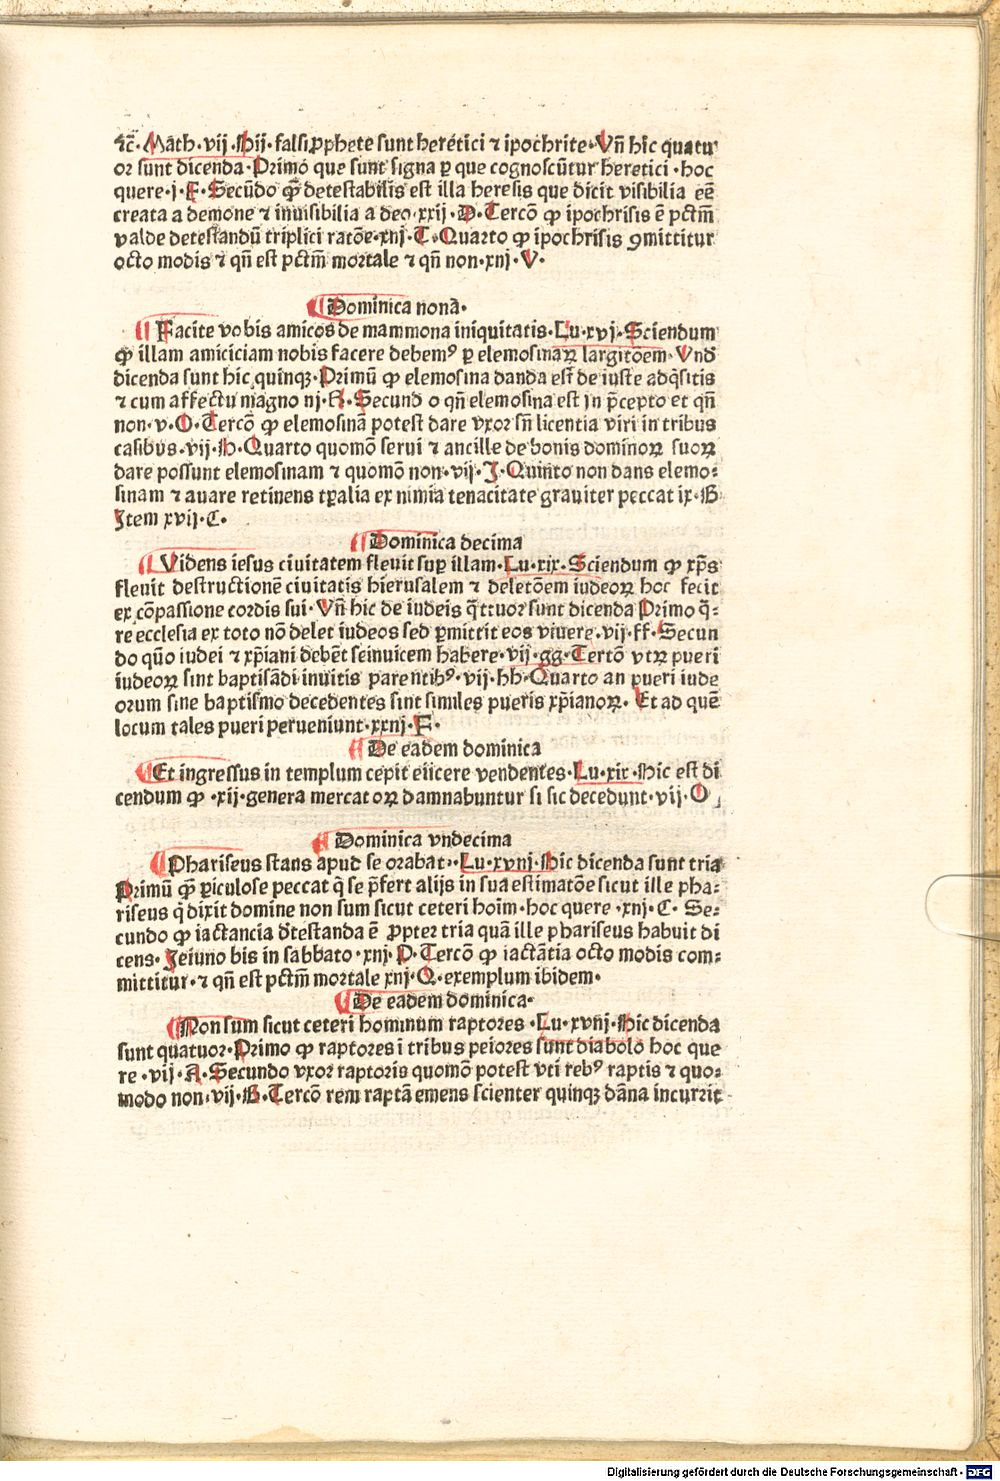 ⁊c̄·Māth·vij·Hij·falsi ꝓphete sunt heretici ⁊ ipochrite·Vn̄ hic quatu
or sunt dicenda·Primo que sunt signa ꝑ que cognoscūtur heretici·hoc
quere·j·F·Secūdo qͫ detestabilis est illa heresis que dicit visibilia eē
creata a demone ⁊ inuisibilia a deo·xxij·D·Tercō ꝙ ipochrisis ē pctm̄
valde detestandū triplici ratōe·xnj·T·Quarto ꝙ ipochrisis ꝯmittitur
octo modis ⁊ qn̄ est pctm̄ mortale ⁊ qn̄ non·xnj·V·
¶Dominica nonā·
¶Facite vobis amicos de mammona iniquitatis·Lu·xvj·Sciendum
ꝙ illam amiciciam nobis facere debemꝰ ꝑ elemosinaꝝ largitōem·Vnd
dicenda sunt hic quinqꝫ·Primū ꝙ elemosina danda est de iuste adq̄sitis
⁊ cum affectu magno nj·A·Secund o qn̄ elemosina est jn p̄cepto et qn̄
non·v·O·Tercō ꝙ elemosinā potest dare vxor sn̄ licentia viri in tribus
casibus·vij·H·Quarto quomō serui ⁊ ancille de bonis dominoꝝ suoꝝ
dare possunt elemosinam ⁊ quomō non·vij·J·Quinto non dans elemo⸗
sinam ⁊ auare retinens tꝑalia ex nimia tenacitate grauiter peccat ix·B
Jtem xvij·C·
¶Dominica decima
¶Videns iesus ciuitatem fleuit suꝑ illam·Lu·xix·Sciendum ꝙ xp̄s
fleuit destructionē ciuitatis hierusalem ⁊ deletōem iudeoꝝ hoc fecit
ex cōpassione cordis sui·Vn̄ hic de iudeis q̄ttuor sunt dicenda Primo q̄⸗
re ecclesia ex toto nō delet iudeos sed ꝑmittit eos viuere·vij·ff·Secun
do quō iudei ⁊ xp̄iani debēt seinuicem habere·vij·gg·Tertō vtꝝ pueri
iudeoꝝ sint baptisādi inuitis parentibꝰ·vij·hh·Quarto an pueri iude
orum sine baptismo decedentes sint similes pueris xp̄ianoꝝ·Et ad quē
locum tales pueri perueniunt·xxnj·F·
¶De eadem dominica
¶Et ingressus in templum cepit eiicere vendentes·Lu·xix·Hic est di
cendum ꝙ·xij·genera mercatoꝝ damnabuntur si sic decedunt·vij·O
¶Dominica vndecima
¶Phariseus stans apud se orabat··Lu·xvnj·Hic dicenda sunt tria
Primū qͫ ꝑiculose peccat q̄ se p̄fert alijs in sua estimatōe sicut ille pha⸗
riseus q̄ dixit domine non sum sicut ceteri hoīm·hoc quere·xnj·C·Se⸗
cundo ꝙ iactancia d̄testanda ē ꝓpter tria quā ille phariseus habuit di
cens·Jeiuno bis in sabbato·xnj·P·Tercō ꝙ iactātia octo modis com⸗
mittitur·⁊ qn̄ est pctm̄ mortale xnj·Q·exemplum ibidem·
¶De eadem dominica·
¶Non sum sicut ceteri hominum raptores·Lu·xvnj·Hic dicenda
sunt quatuor·Primo ꝙ raptores ī tribus peiores sunt diabolo hoc que
re·vij·A·Secundo vxor raptoris quomō potest vti rebꝰ raptis ⁊ quo⸗
modo non·vij·B·Tercō rem raptā emens scienter quinqꝫ dāna incurrit
Digitalisierung gefördert durch die Deutsche Forschungsgemeinschaft - DFG